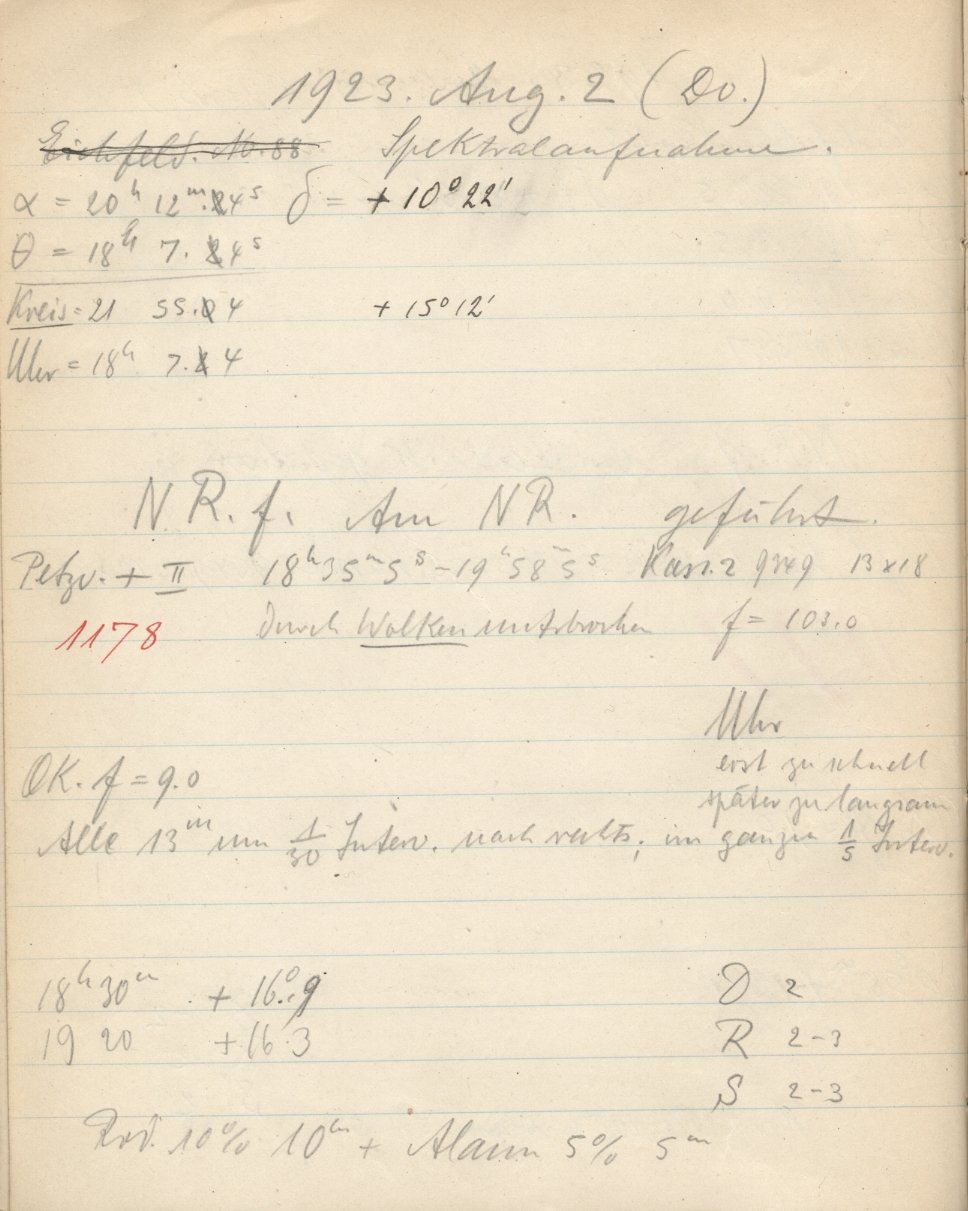 1923. Aug. 2 (Do.)
Eichfeld. No. 88 Spektralaufnahme.
α = 20h 12m.4s δ = + 10° 22'
θ = 18h 7. 4s
Kreis = 21 55. 4 + 15° 12'
Uhr = 18h 7. 4
N.R.f. Am NR. geführt.
Petzv. + II 18h 35m 5s – 19h 58m 5s Kass. 2 9x49 13x18
1178 durch Wolken unterbrochen f = 103.0
Uhr
erst zu schnell
OK. f = 9.0
später zu langsam
Alle 13m um 1/30 Interv. nach rechts; im ganzen 1/5 Interv.
18h 30m + 16°.9 D 2
19 20 + 16.3 R 2–3
S 2–3
Rod. 10% 10m + Alaun 5% 5m